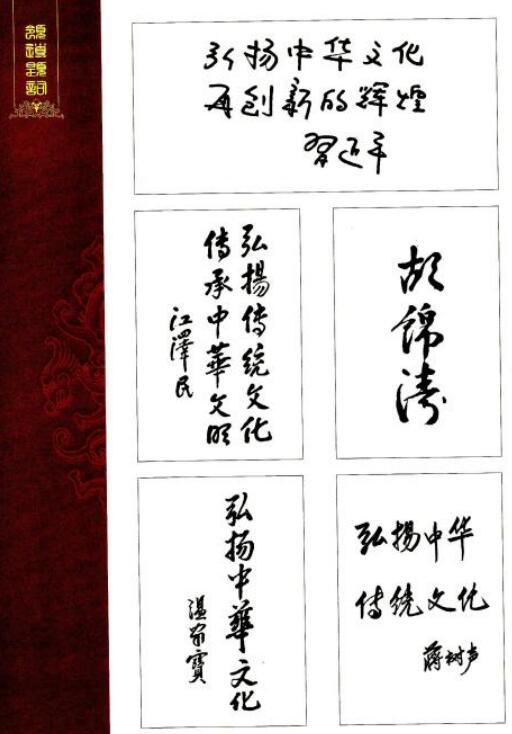 领导题词
弘扬中华文化
再创新的辉煌
習近平
弘揚傳统文化
傳承中華文明
江澤民
胡錦濤
弘扬中華文化
温家寶
弘揚中华
傳统文化
蒋树声